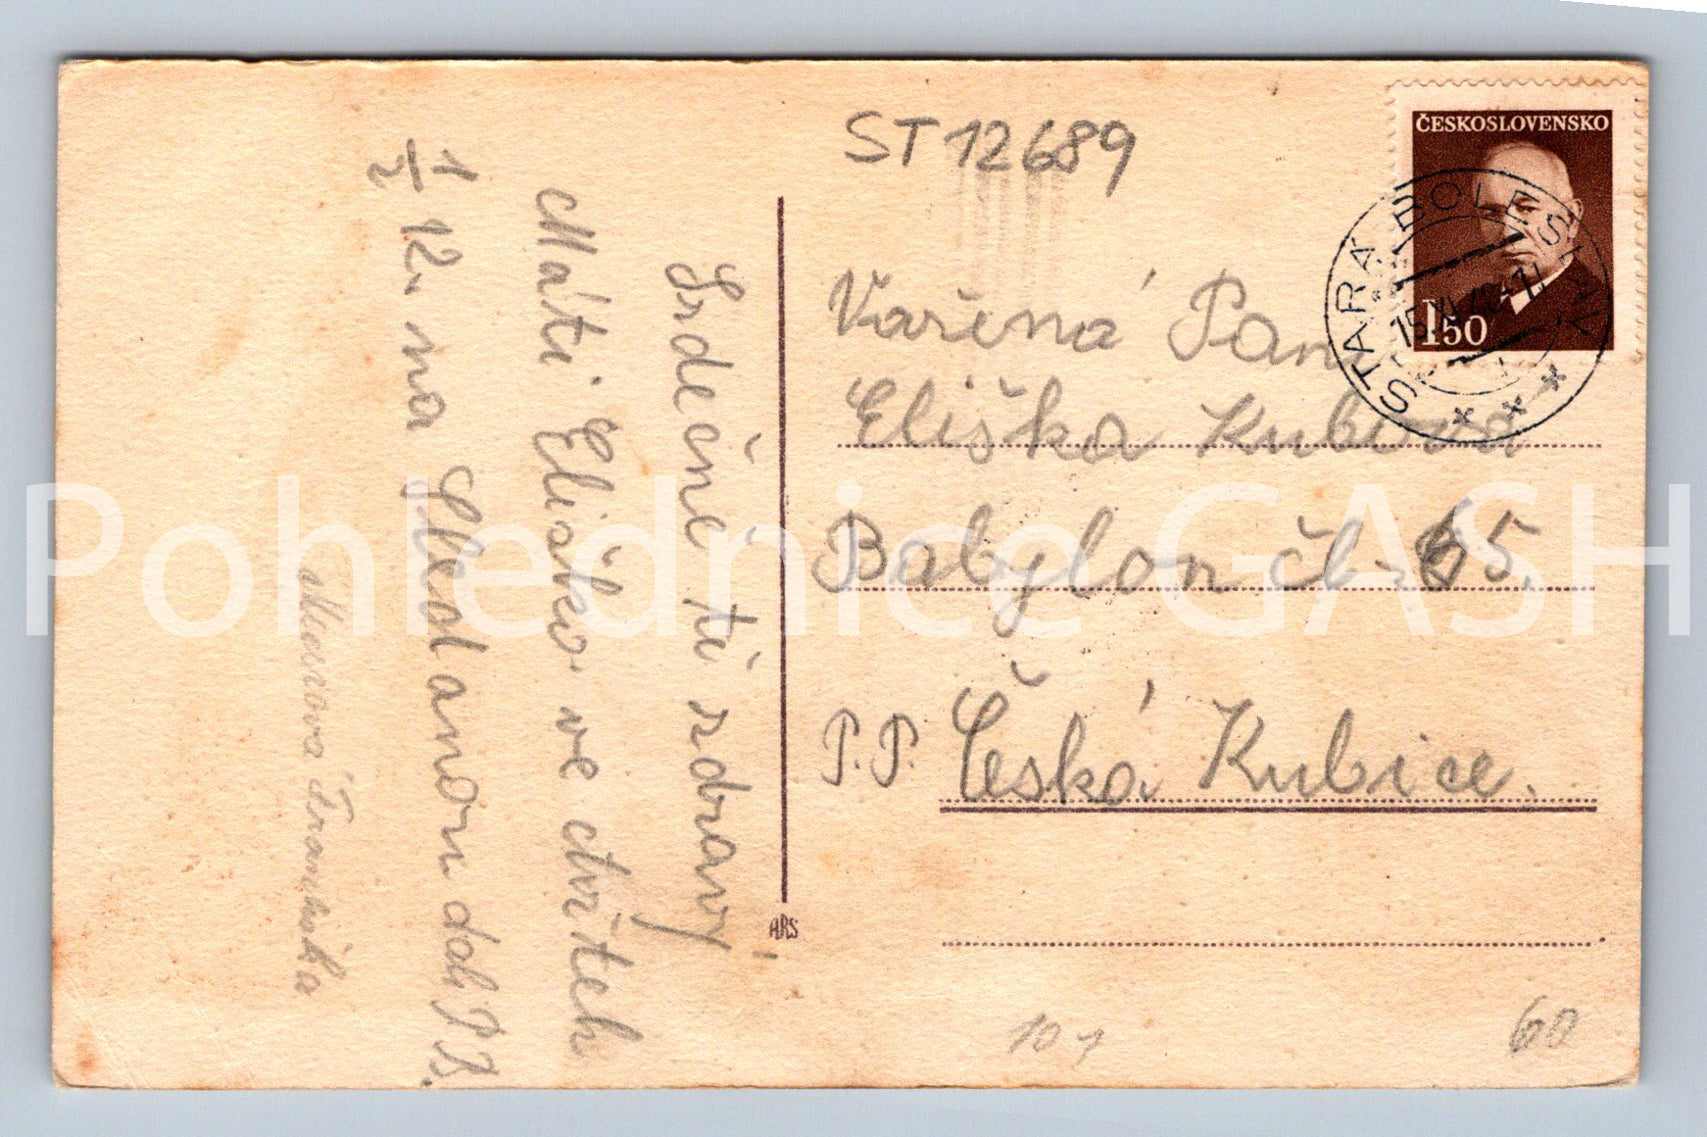 ST 12689
ČESKOSLOVENSKO
1.50
STARÁ BOLESLAV
Vařená Paní
Eliška Kubová
Babylon čl. 65.
P.P. Česká Kubice.
Srdečně ti zdraví
Máti Eliško ve čtvrtek
1/2 12. na
Františka
ARS
10
60
Pohlednice GASH